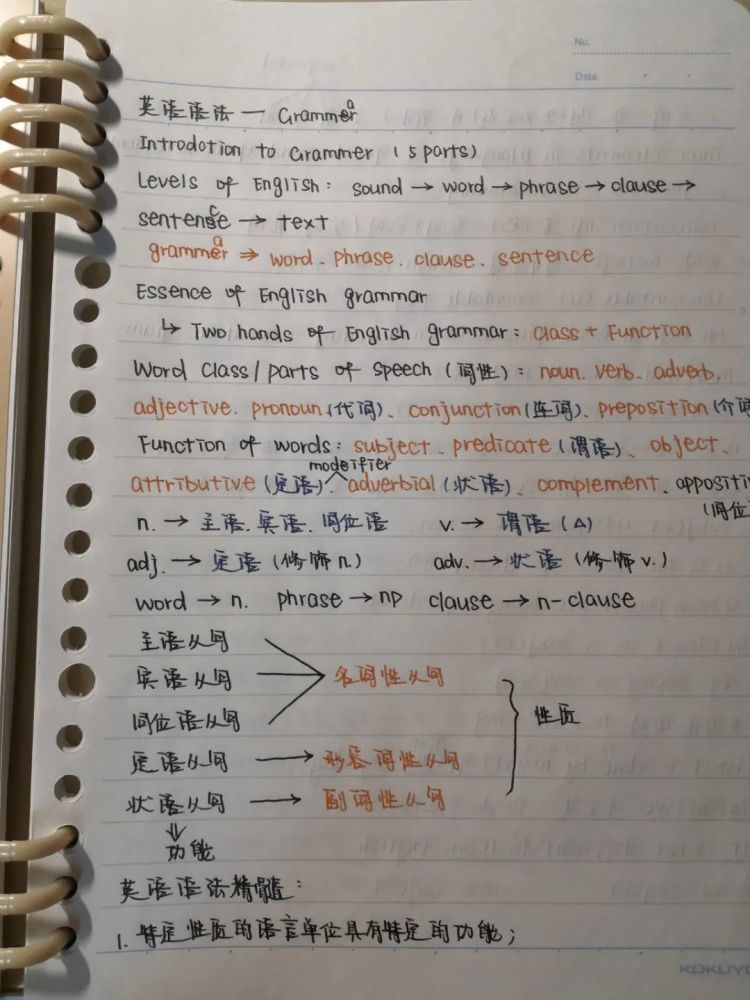 No.
Date
英语语法 — Grammer a
Introdction to Grammer (5 parts)
Levels of English: sound → word → phrase → clause →
sentense c → text
grammer a ⇒ word. phrase. clause. sentence
Essence of English grammar
↳ Two hands of English grammar: class + Function
Word Class/parts of speech (词性): noun. verb. adverb.
adjective. pronoun (代词)、conjunction (连词)、preposition (介词
Function of words: subject. predicate (谓语)、object、
modeifier
attributive (定语)、adverbial (状语)、complement、appositi
(同位
n. → 主语. 宾语. 同位语 v. → 谓语 (△)
adj. → 定语 (修饰 n.) adv. → 状语 (修饰 v.)
word → n. phrase → np clause → n-clause
主语从句
宾语从句 名词性从句
同位语从句 性质
定语从句 → 形容词性从句
状语从句 → 副词性从句
⇓
功能
英语语法精髓:
1. 特定性质的语言单位具有特定的功能;
KOKUYO